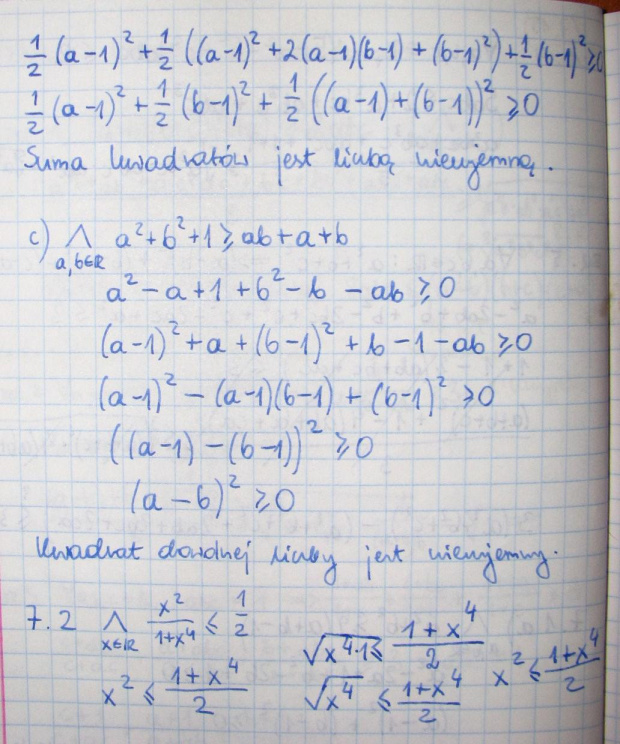 1/2 (a-1)² + 1/2 ((a-1)² + 2(a-1)(b-1) + (b-1)²) + 1/2 (b-1)² ≥ 0
1/2 (a-1)² + 1/2 (b-1)² + 1/2 ((a-1) + (b-1))² ≥ 0
Suma kwadratów jest liczbą nieujemną.
c) ∧ a,b∈ℝ a² + b² + 1 ≥ ab + a + b
a² - a + 1 + b² - b - ab ≥ 0
(a-1)² + a + (b-1)² + b - 1 - ab ≥ 0
(a-1)² - (a-1)(b-1) + (b-1)² ≥ 0
((a-1) - (b-1))² ≥ 0
(a-b)² ≥ 0
Kwadrat dowolnej liczby jest nieujemny.
7.2 ∧ x∈ℝ x²/(1+x⁴) ≤ 1/2
x² ≤ (1+x⁴)/2
√(x⁴·1) ≤ (1+x⁴)/2
√(x⁴) ≤ (1+x⁴)/2
x² ≤ (1+x⁴)/2